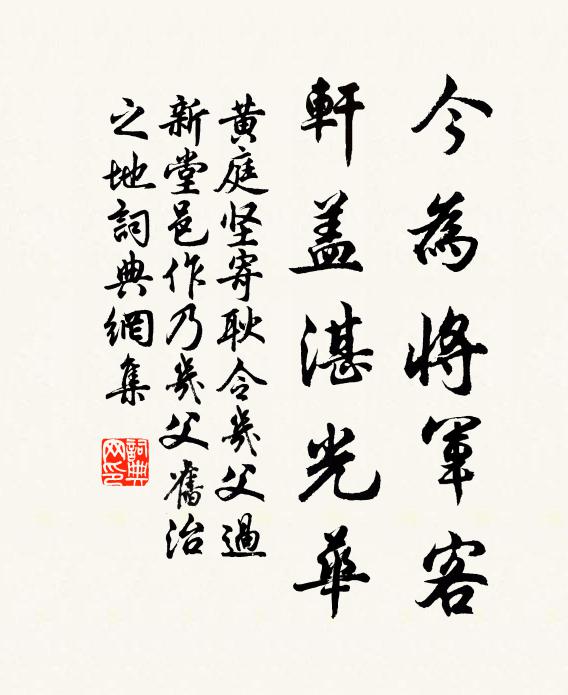 今為將軍客
軒蓋湛光華
黄庭坚寄耿令幾父過
新堂邑作乃幾父舊治
之地詞典網集
詞典
网印